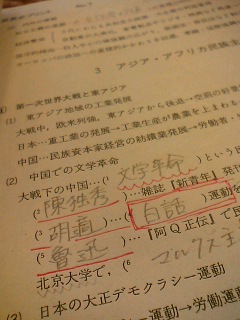 3 アジア・アフリカ民族主
第一次世界大戦と東アジア
(1) 東アジア地域の工業発展
大戦中，欧米列強，東アジアから後退→空前の好景
日本…重工業の発展→工業生産が農業を上まわる
中国…民族資本家経営の紡績業発展→労働者・
(2) 中国での文学革命
大戦下の中国…(¹ 文学革命 )という
(² 陳独秀 )…雑誌『新青年』発刊
(³ 胡適 )…(⁴ 白話 )運動を
(⁵ 魯迅 )…『阿Q正伝』で
北京大学で，(⁶ マルクス主
(3) 日本の大正デモクラシー運動
運動→労働運動